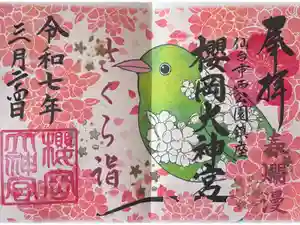 奉拝
仙台市西公園鎮座
櫻岡大神宮
春爛漫
さくら詣
令和七年
三月二四日
櫻岡大神宮